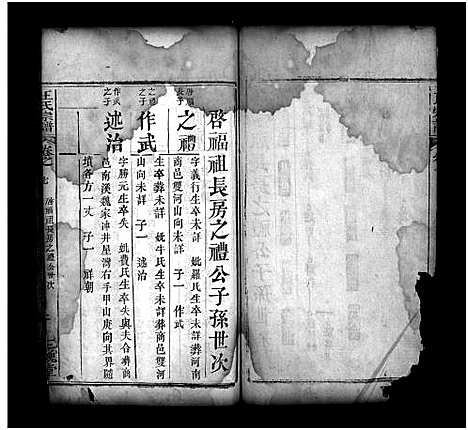 啓福祖長房之禮公子孫世次
之禮
字義行生卒未詳 妣羅氏生卒未詳葬河南
商邑雙河山向未詳 子一 作武
之禮
之子
作武
生卒葬未詳 妣牛氏生卒未詳葬商邑雙河
山向未詳 子一 述治
作武
之子
述治
字勝元生卒失 妣費氏生卒失與夫合葬商
邑南溪魏家冲井屋灣右手甲山庚向其界隨
墳各方一丈 子一 祥朝
汪氏宗譜
啓福祖長房之禮公世次